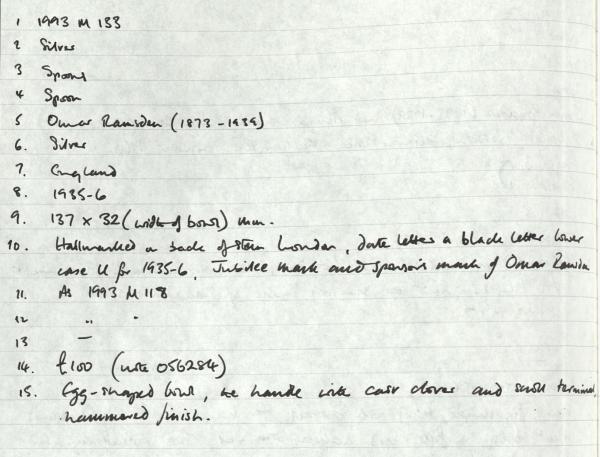 1 1993 M 133
2 Silver
3 Spoons
4 Spoon
5 Omar Ramsden (1873-1939)
6. Silver
7. England
8. 1935-6
9. 137 x 32 (width of bowl) mm.
10. Hallmarked on back of stem London, date letter a black letter lower
case U for 1935-6, Jubilee mark and sponsor's mark of Omar Ramsden
11. As 1993 M 118
12 " "
13 —
14. £100 (note 056284)
15. Egg-shaped bowl, the handle with cast clover and scroll terminal,
hammered finish.